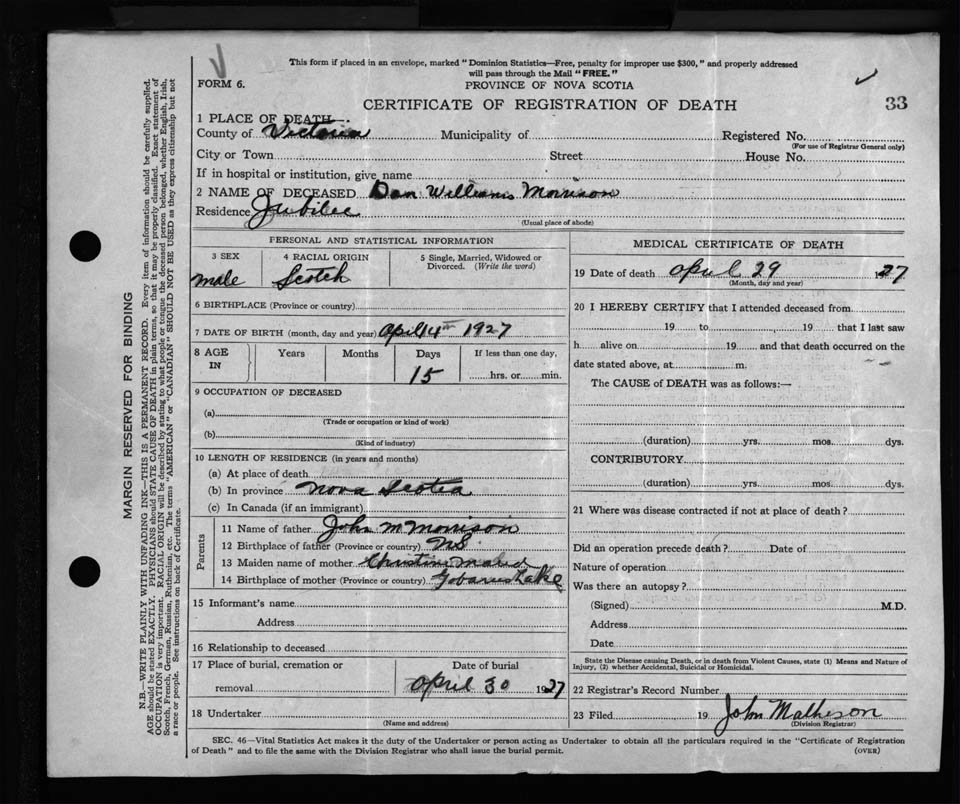 This form if placed in an envelope, marked "Dominion Statistics—Free, penalty for improper use $300," and properly addressed
will pass through the Mail "FREE."
FORM 6.
PROVINCE OF NOVA SCOTIA
33
CERTIFICATE OF REGISTRATION OF DEATH
1 PLACE OF DEATH—
County of Victoria Municipality of Registered No.
(For use of Registrar General only)
City or Town Street House No.
If in hospital or institution, give name
2 NAME OF DECEASED Dan William Morrison
Residence Jubilee
(Usual place of abode)
PERSONAL AND STATISTICAL INFORMATION
3 SEX 4 RACIAL ORIGIN 5 Single, Married, Widowed or
Divorced. (Write the word)
male Scotch
6 BIRTHPLACE (Province or country)
7 DATE OF BIRTH (month, day and year) April 14th 1927
8 AGE Years Months Days If less than one day,
IN 15 hrs. or min.
9 OCCUPATION OF DECEASED
(a)
(Trade or occupation or kind of work)
(b)
(Kind of industry)
10 LENGTH OF RESIDENCE (in years and months)
(a) At place of death
(b) In province Nova Scotia
(c) In Canada (if an immigrant)
Parents
11 Name of father John M Morrison
12 Birthplace of father (Province or country) NS
13 Maiden name of mother Christine
14 Birthplace of mother (Province or country) Gabarus Lake
15 Informant's name
Address
16 Relationship to deceased
17 Place of burial, cremation or Date of burial
removal April 30 1927
18 Undertaker
(Name and address)
MEDICAL CERTIFICATE OF DEATH
19 Date of death April 29 1927
(Month, day and year)
20 I HEREBY CERTIFY that I attended deceased from
19 to , 19 that I last saw
h alive on 19 and that death occurred on the
date stated above, at m.
The CAUSE of DEATH was as follows:—
(duration) yrs. mos. dys.
CONTRIBUTORY
(duration) yrs. mos. dys.
21 Where was disease contracted if not at place of death?
Did an operation precede death? Date of
Nature of operation
Was there an autopsy?
(Signed) M.D.
Address
Date
State the Disease causing Death, or in death from Violent Causes, state (1) Means and Nature of
Injury, (2) whether Accidental, Suicidal or Homicidal.
22 Registrar's Record Number
23 Filed 19 John Matheson
(Division Registrar)
SEC. 46—Vital Statistics Act makes it the duty of the Undertaker or person acting as Undertaker to obtain all the particulars required in the "Certificate of Registration
of Death" and to file the same with the Division Registrar who shall issue the burial permit. (OVER)
MARGIN RESERVED FOR BINDING
N.B.—WRITE PLAINLY WITH UNFADING INK—THIS IS A PERMANENT RECORD. Every item of information should be carefully supplied.
AGE should be stated EXACTLY. PHYSICIANS should STATE CAUSE OF DEATH in plain terms, so that it may be properly classified. Exact statement of
OCCUPATION is very important. RACIAL ORIGIN will be described by stating to what people or tongue the deceased person belonged, whether English, Irish,
Scotch, French, German, Russian, Ruthenian, etc. The terms "AMERICAN" or "CANADIAN" SHOULD NOT BE USED as they express citizenship but not
a race or people. See instructions on back of Certificate.